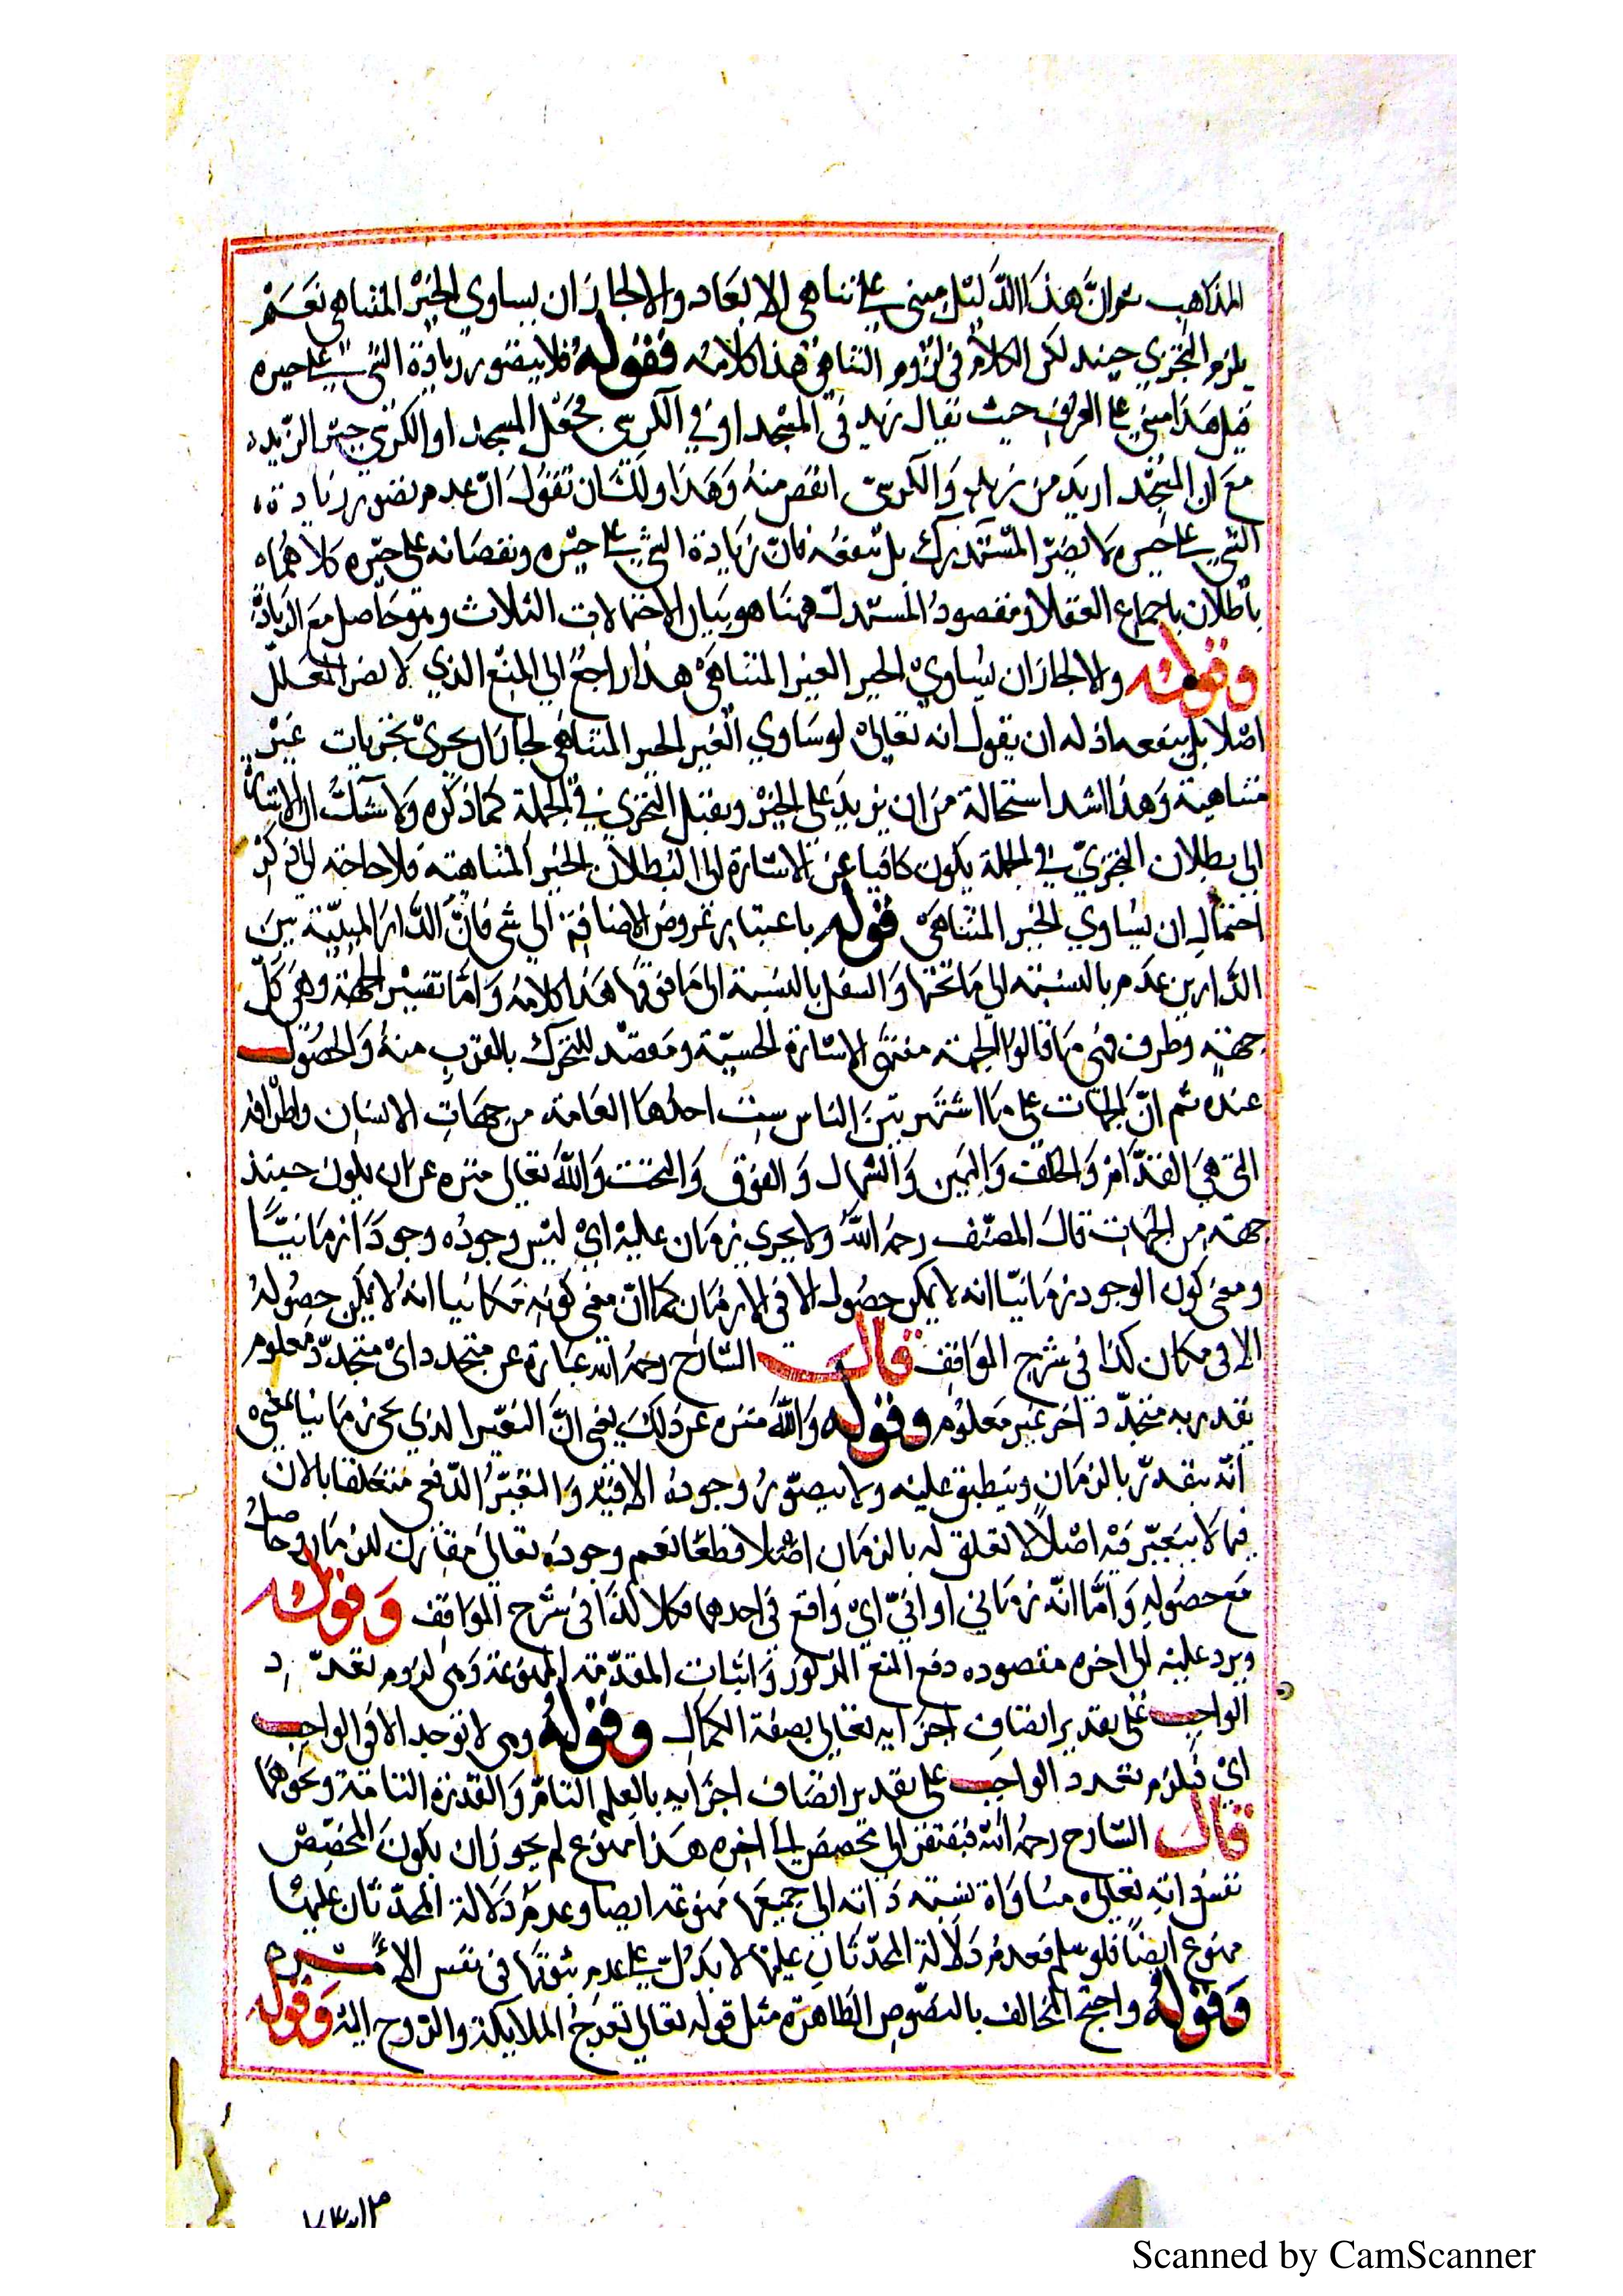 المذاهب ثم ان هذا الدليل مبني على تناهي الابعاد والا لجاز ان يساوي الحيز المتناهي نعم
يلزم التجزي حينئذ لكن الكلام في لزوم التناهي هذا كلامه فقوله فلا يتصور زيادة الشيء على حيزه
قيل هذا مبني على العرف حيث يقال زيد في المسجد او في الكرسي فجعل المسجد او الكرسي حيز الزيد
مع ان المسجد ازيد من زيد والكرسي انقص منه وهذا ولك ان تقول ان عدم تصور زيادة
الشيء على حيزه لا يضر المستدرك بل ينفعه فان زيادة الشيء على حيزه ونقصانه على حيزه كلاهما
باطلان باجماع العقلا ومقصود المستدل ههنا هو بيان الاحتمالات الثلاث وهو حاصل مع الزيادة
وقوله والا لجاز ان يساوي الحيز الغير المتناهي هذا راجع الى المنع الذي لا يضر المعلل
اصلا بل ينفعه اذ له ان يقول انه تعالى لو ساوي الغير الحيز المتناهي لجاز ان يجري بجزيات غير
متناهية وهذا اشد استحالة من ان يزيد على الحيز ويقبل التجزي في الجملة كما ذكره ولا شك ان الاشارة
الى بطلان التجزي في الجملة يكون كافيا عن الاشارة الى البطلان الحيز المتناهية فلا حاجة الى ذكر
احتمال ان يساوي الحيز المتناهي قوله باعتبار عروض الاضافة الى شي فان الدار المبنية بين
الدارين علو بالنسبة الى ما تحتها والسفل بالنسبة الى ما فوقها هذا كلامه واما تفسير الجهة وهي كل
جهة وطرف فهي ما قالوا الجهة منتهى الاشارة الحسية ومقصد للتحرك بالقرب منه والحصول
عنده ثم ان الجهات على ما اشتهر بين الناس ست احدها العامة من جهات الانسان واطرافه
التي هي القدام والخلف واليمين والشمال والفوق والتحت والله تعالى منزه عن ان يكون حينئذ
جهة من الجهات قال المصنف رحمه الله ولا يجري زمان عليه اي ليس وجوده وجودا زمانيا
ومعنى كون الوجود زمانيا انه لا يمكن حصوله الا في الا زمان كما ان معنى كونه مكانيا انه لا يمكن حصوله
الا في مكان كذا في شرح المواقف قال الشارح رحمه الله عبارة عن متجدد اي متجدد معلوم
يقدر به متجدد اخر غير معلوم وقوله والله منزه عن ذلك يعني ان التغير الذي يحي زمانيا بمعنى
انه يتقدر بالزمان وينطبق عليه ولا يتصور وجوده الا فيه والتغير الدفعي متعلقا بالان
فما لا يتغير فيه اصلا لا تعلق له بالزمان اصلا قطعا نعم وجوده تعالى مقارن للزمان وحاصل
مع حصوله واما انه زماني او اني اي واقع في احدهما فكلا كذا في شرح المواقف وقوله
ويرد عليه الى اخره مقصوده دفع المنع المذكور واثبات المقدمة الممنوعة وهي لزوم تعدد
الواجب على تقدير اتصاف اجزايه تعالى بصفة الكمال وقوله وهي لا توجد الا في الواجب
اي فيلزم تعدد الواجب على تقدير اتصاف اجزايه بالعلم التام والقدرة التامة ونحوهما
قال الشارح رحمه الله فيفتقر الى تخصيص الى اخره هذا ممنوع لم يجوز ان يكون المخصص
نفس ذاته تعالى مساواة نسبة ذاته الى جميعها ممنوعة ايضا وعدم دلالة المحدثات عليها
ممنوع ايضا فلو سلم فعدم دلالة المحدثات عليها لا يدل على عدم ثبوتها في نفس الامر
وقوله واحتج المخالف بالنصوص الظاهرة مثل قوله تعالى تعرج الملايكة والروح اليه وقوله
Scanned by CamScanner